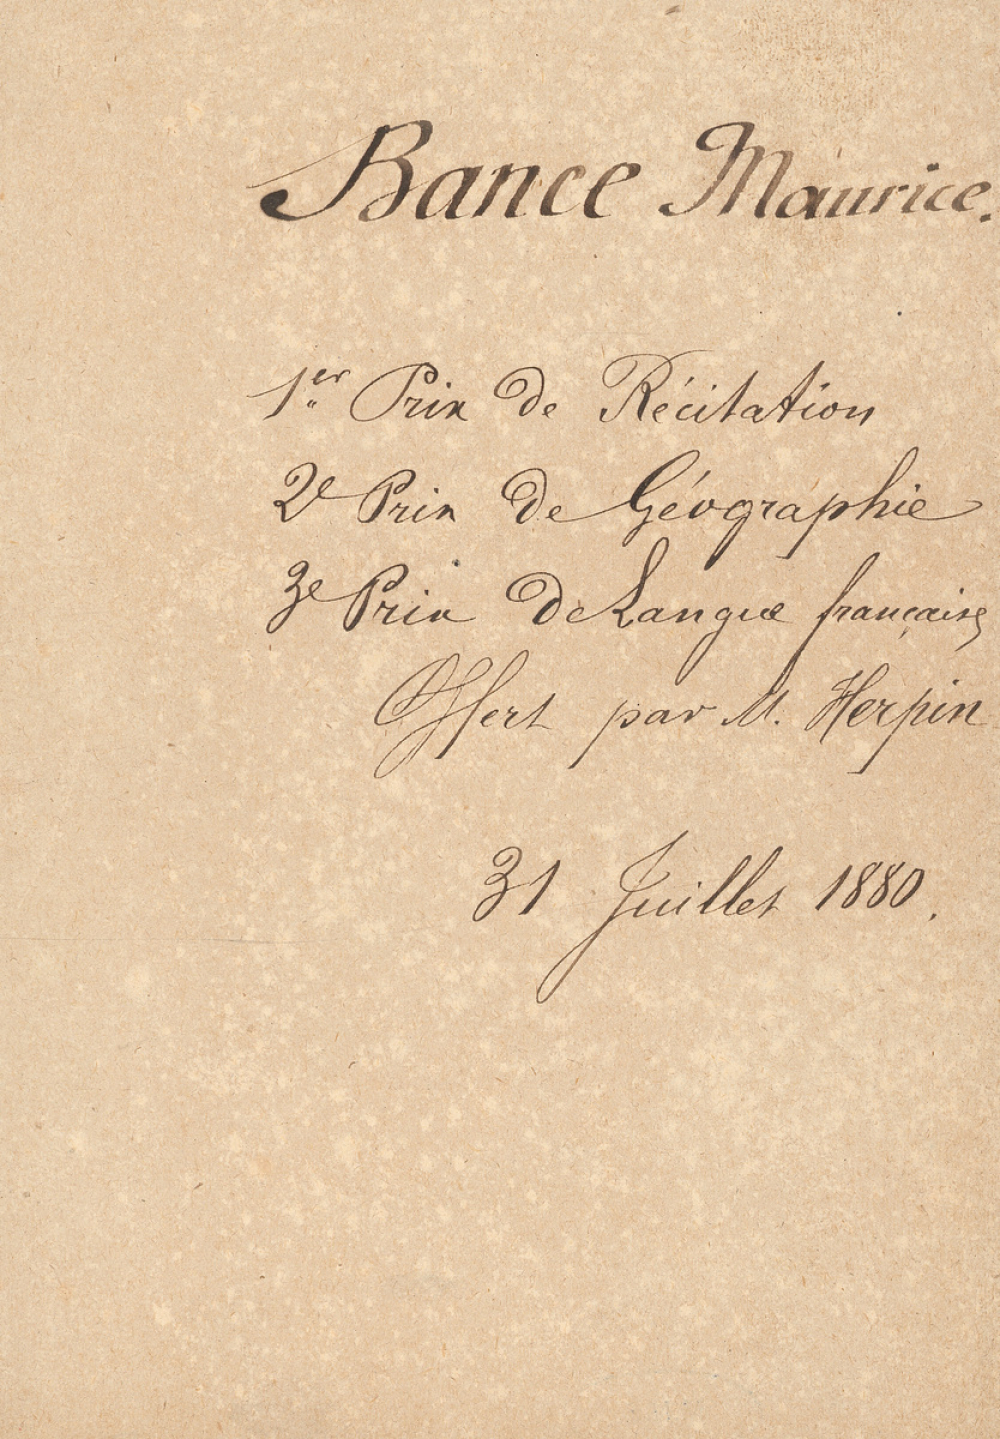 Bance Maurice.
1er Prix de Récitation
2e Prix de Géographie
3e Prix de Langue française
Offert par M. Herpin
31 Juillet 1880.